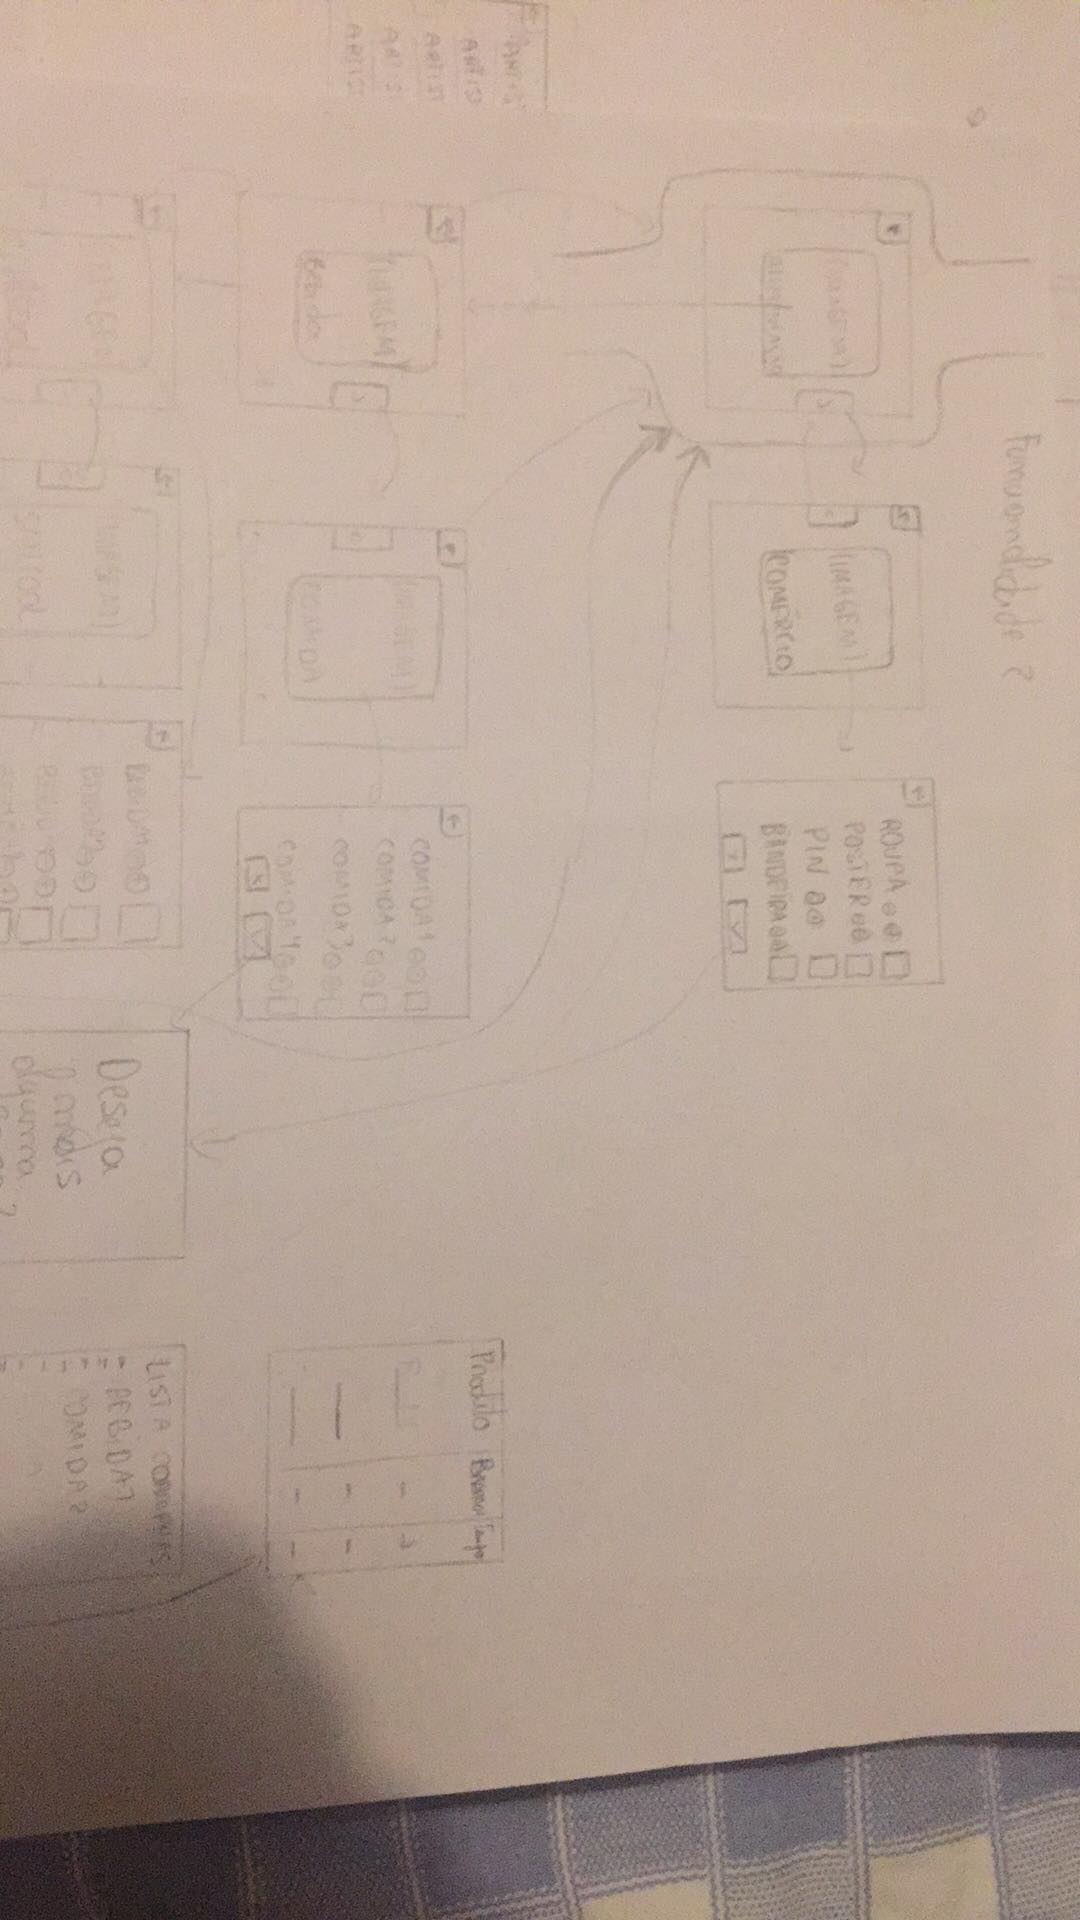 Funcionalidade 2
(IMAGEM)
(IMAGEM)
COMÉRCIO
ROUPA
POSTER
PIN
BANDEIRA
ARTIS
ARTIS
ARTIST
ARTIS
ARTIST
(IMAGEM)
Bebida
(IMAGEM)
COMIDA
COMIDA 1
COMIDA 2
COMIDA 3
COMIDA 4
Produto
(IMAGEM)
(IMAGEM)
S/ALCOOL
BEBIDA 1
BEBIDA 2
BEBIDA
Deseja
mais
alguma
LISTA COMPRAS
BEBIDA 1
COMIDA 2